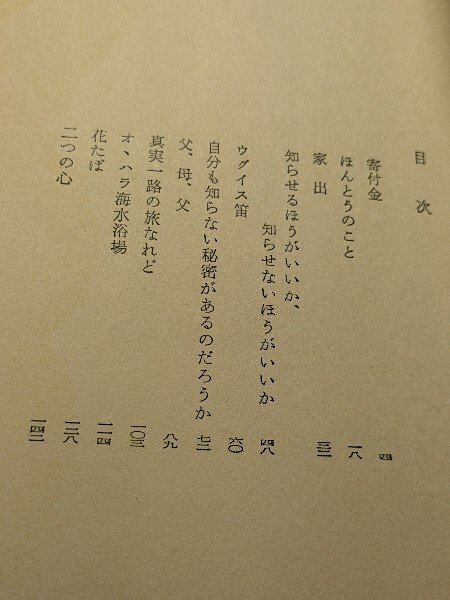 目次
寄付金 四
ほんとうのこと 一八
家出 三二
知らせるほうがいいか、
知らせないほうがいいか 四八
ウグイス笛 六〇
自分も知らない秘密があるのだろうか 七二
父、母、父 八九
真実一路の旅なれど 一〇三
オ、ハラ海水浴場 一一四
花たば 一三八
二つの心 一四二